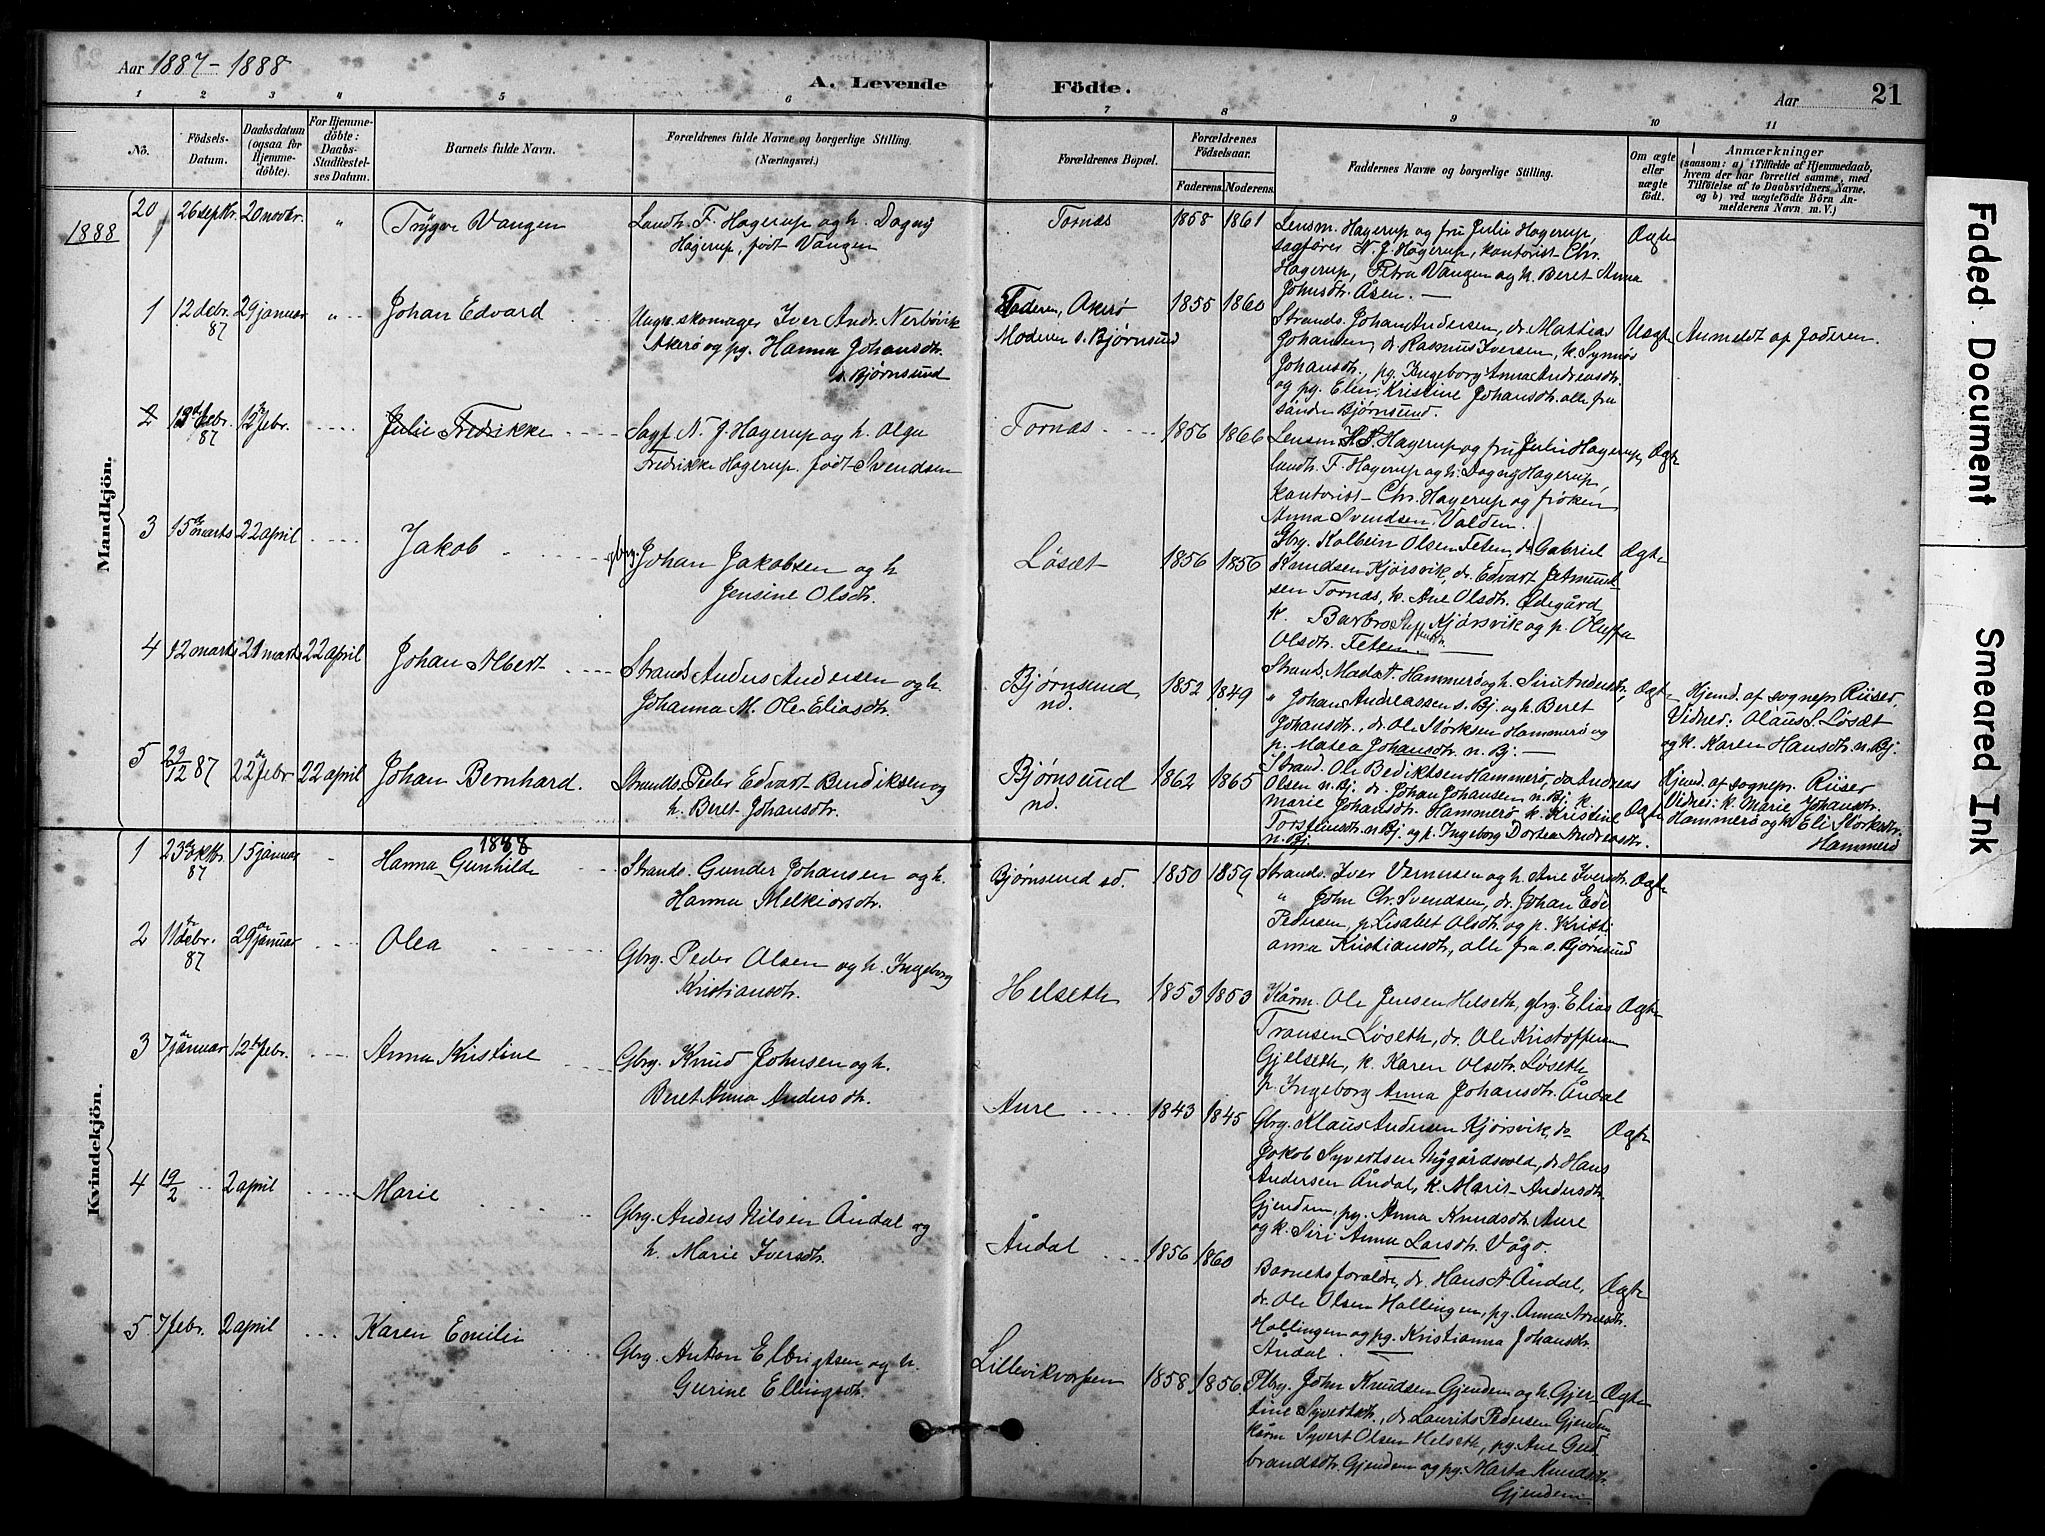 Aar 1887-1888
A. Levende Födte.
Aar 21
1 2 3 4 5 6 7 8 9 10 11
No.
Födsels-Datum.
Daabsdatum (ogsaa for Hjemmedöbte).
For Hjemmedöbte: Daabs-Stadfæstelses Datum.
Barnets fulde Navn.
Forældrenes fulde Navne og borgerlige Stilling. (Næringsvei.)
Forældrenes Bopæl.
Forældrenes Födselsaar.
Faderens. Moderens.
Faddernes Navne og borgerlige Stilling.
Om ægte eller uægte födt.
Anmærkninger
(saasom: a) i Tilfælde af Hjemmedaab, hvem der har forrettet samme, med Tilföielse af to Daabsvidners Navne, og b) ved uægtefödte Börn Anmelderens Navn m. V.)
Mandkjön.
20 26 septbr. 20 novbr. " Trygve Vangen
Landh. F. Hagerup og h. Dagny
Hagerup, født Vangen
Tornæs 1858 1861
Lensm. Hagerup og fru Julie Hagerup,
sagfører N. J. Hagerup, kantorist Chr.
Hagerup, Petra Vangen og k. Beret Anna
Johnsdtr. Åsen. —
Ægte
1888
1 12 debr. 87 29 januar " Johan Edvard
Ungk. skomager Iver Andr. Nerbøvik
Akerø og pg. Hanna Johansdtr.
s. Bjørnsund
Faderen, Akerø
Moderen s. Bjørnsund
1855 1860
Strands. Johan Andersen, do. Mattias
Johansen, do. Rasmus Iversen, k. Synnøs
Johansdtr., pg. Ingeborg Anna Andreasdtr.
og pg. Elen Kristine Johansdtr. alle fra
søndre Bjørnsund.
Uægte Anmeldt af faderen.
2 13 debr. 87 12 febr. Julie Fredrikke
Sagf. N. J. Hagerup og h. Olga
Fredrikke Hagerup, født Svendsen
Tornæs 1856 1866
Lensm. Hagerup og fru Julie Hagerup,
landh. F. Hagerup og h. Dagny Hagerup,
kantorist Chr. Hagerup og frøken
Anna Svendsen Valden.
Ægte
3 15 marts 22 april Jakob
gbrg. Johan Jakobsen og h.
Jensine Olsdtr.
Løsæt 1856 1856
Gbrg. Kolbein Olsen Feten, do Gabriel
Knudsen Kjørsvik, do. Edvart Jetmund-
sen Tornæs, k. Ane Olsdtr. Ødegård,
k. Barbro Kjørsvik og p. Oluffa
Olsdtr. Feten
Ægte
4 12 marts 21 marts 22 april Johan Albert
Strands. Anders Andersen og h.
Johanna M. Ole-Eliasdtr.
Bjørnsund nd. 1852 1849
Strands. Mads A. Hammerø og h. Siri Andersdtr,
" Johan Andreassen s. Bj. og h. Beret
Johansdtr., do. Ole Størksen Hammerø og
p. Matea Johansdtr. n. Bj. —
Ægte
Hjemd. af sognepr. Riiser,
Vidner: Olaus S. Løsæt
og k. Karen Hansdtr. n. Bj.
5 29/12 87 22 febr. 22 april Johan Bernhard.
Strands. Peder Edvart Bendiksen og
h. Beret Johansdtr.
Bjørnsund nd. 1862 1865
Strands. Ole Bediktsen Hammerø, do Andreas
Olsen n. Bj. do. Johan Johansen n. Bj. k.
Marie Johansdtr. Hammerø, k. Kristine
Torsteinsdtr. n. Bj. og p. Ingeborg Dortea Andreasdtr.
n. Bj.
Ægte
Hjemd. af sognepr. Riiser
Vidner: k. Marie Johansdtr.
Hammerø og k. Eli Størksdtr.
Hammerø
Kvindekjön.
1888
1 23 oktbr. 87 15 januar Hanna Gunhilde
Strands. Gunder Johansen og h.
Hanna Melkiorsdtr.
Bjørnsund sd. 1850 1859
Strands. Iver Vernusen og h. Ane Iversdtr.
" John Chr. Svendsen, do. Johan Ede
Pedersen, p. Lisabet Olsdtr. og p. Kristi-
anna Kristiansdtr., alle fra s. Bjørnsund
Ægte
2 11 debr. 87 29 januar Olea
Gbrg. Peder Olsen og h. Ingeborg
Kristiansdtr.
Helseth 1853 1853
Kårm. Ole Jensen Helseth, gbrg. Elias
Transen Løseth, do. Ole Kristoffersen
Gjelseth, k. Karen Olsdtr. Løseth,
p. Ingeborg Anna Johansdtr. Åndal
Ægte
3 7 januar 12 febr. Anna Kristine
Gbrg. Knud Johnsen og h.
Beret Anna Andersdtr.
Aure 1843 1845
Gbrg. Klaus Andersen Kjørsvik, do
Jakob Syvertsen Nygårdsvold, do. Hans
Andersen Åndal, k. Marit Andersdtr.
Gjendem, pg. Anna Knudsdtr. Aure
og k. Siri Anna Larsdtr. Vågø.
Ægte
4 19/2 2 april Marie
Gbrg. Anders Nilsen Åndal og
h. Marie Iversdtr.
Åndal 1856 1860
Barnets forældre, do. Hans A Åndal,
do. Ole Olsen Hollingen, pg. Anna Arnesdtr.
Hollingen og pg. Kristianna Johansdtr.
Åndal.
Ægte
5 7 febr. 2 april Karen Emilie
Gbrg. Anton Elbrigtsen og h.
Gurine Ellingsdtr.
Lillevikvorpen 1858 1856
Plbg. John Knudsen Gjendem og h. Gjer-
tine Syvertsdtr., do. Laurits Pedersen Gjendem,
kårm. Syvert Olsen Helseth, pg. Ane Gud-
brandsdtr. Gjendem og pg. Marta Knudsdtr.
Gjendem
Ægte
Faded Document
Smeared Ink